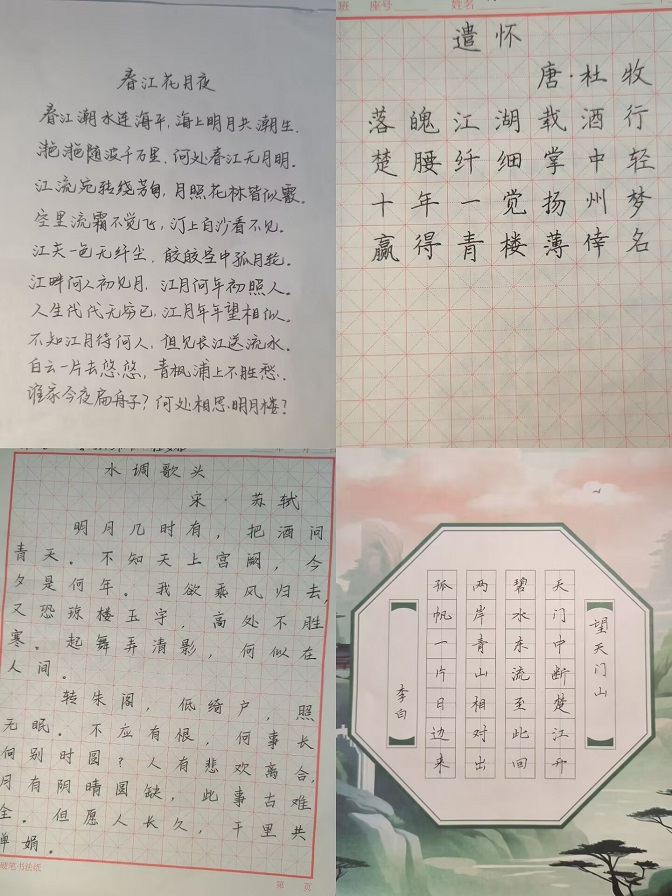 春江花月夜
春江潮水连海平,海上明月共潮生.
滟滟随波千万里.何处春江无月明.
江流宛转绕芳甸,月照花林皆似霰.
空里流霜不觉飞,汀上白沙看不见.
江天一色无纤尘.皎皎空中孤月轮.
江畔何人初见月,江月何年初照人.
人生代代无穷已,江月年年望相似.
不知江月待何人,但见长江送流水.
白云一片去悠悠,青枫浦上不胜愁.
谁家今夜扁舟子?何处相思明月楼?
班 座号 姓名
遣怀
唐·杜牧
落魄江湖载酒行
楚腰纤细掌中轻
十年一觉扬州梦
赢得青楼薄倖名
水调歌头
宋·苏轼
明月几时有,把酒问
青天。不知天上宫阙,今
夕是何年。我欲乘风归去,
又恐琼楼玉宇,高处不胜
寒。起舞弄清影,何似在
人间。
转朱阁,低绮户,照
无眠。不应有恨,何事长
何别时圆?人有悲欢离合,
月有阴晴圆缺,此事古难
全。但愿人长久,千里共
婵娟。
硬笔书法纸
第 页
望天门山
天门中断楚江开
碧水东流至此回
两岸青山相对出
孤帆一片日边来
李白